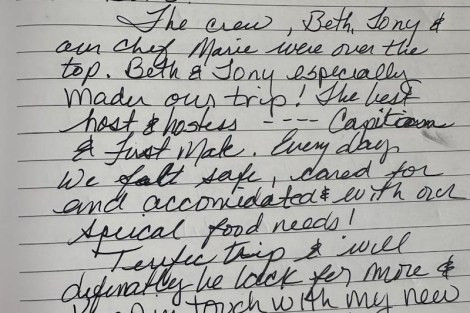 The crew, Beth, Tony &
our chef Marie were over the
top. Beth & Tony especially
mader our trip! The best
host & hostess ---- Capitian
& First Mate. Every day
We felt safe, cared for
and accomidated & with our
speical food needs!
Terrific trip & will
definatley be back for more &
in touch with my new